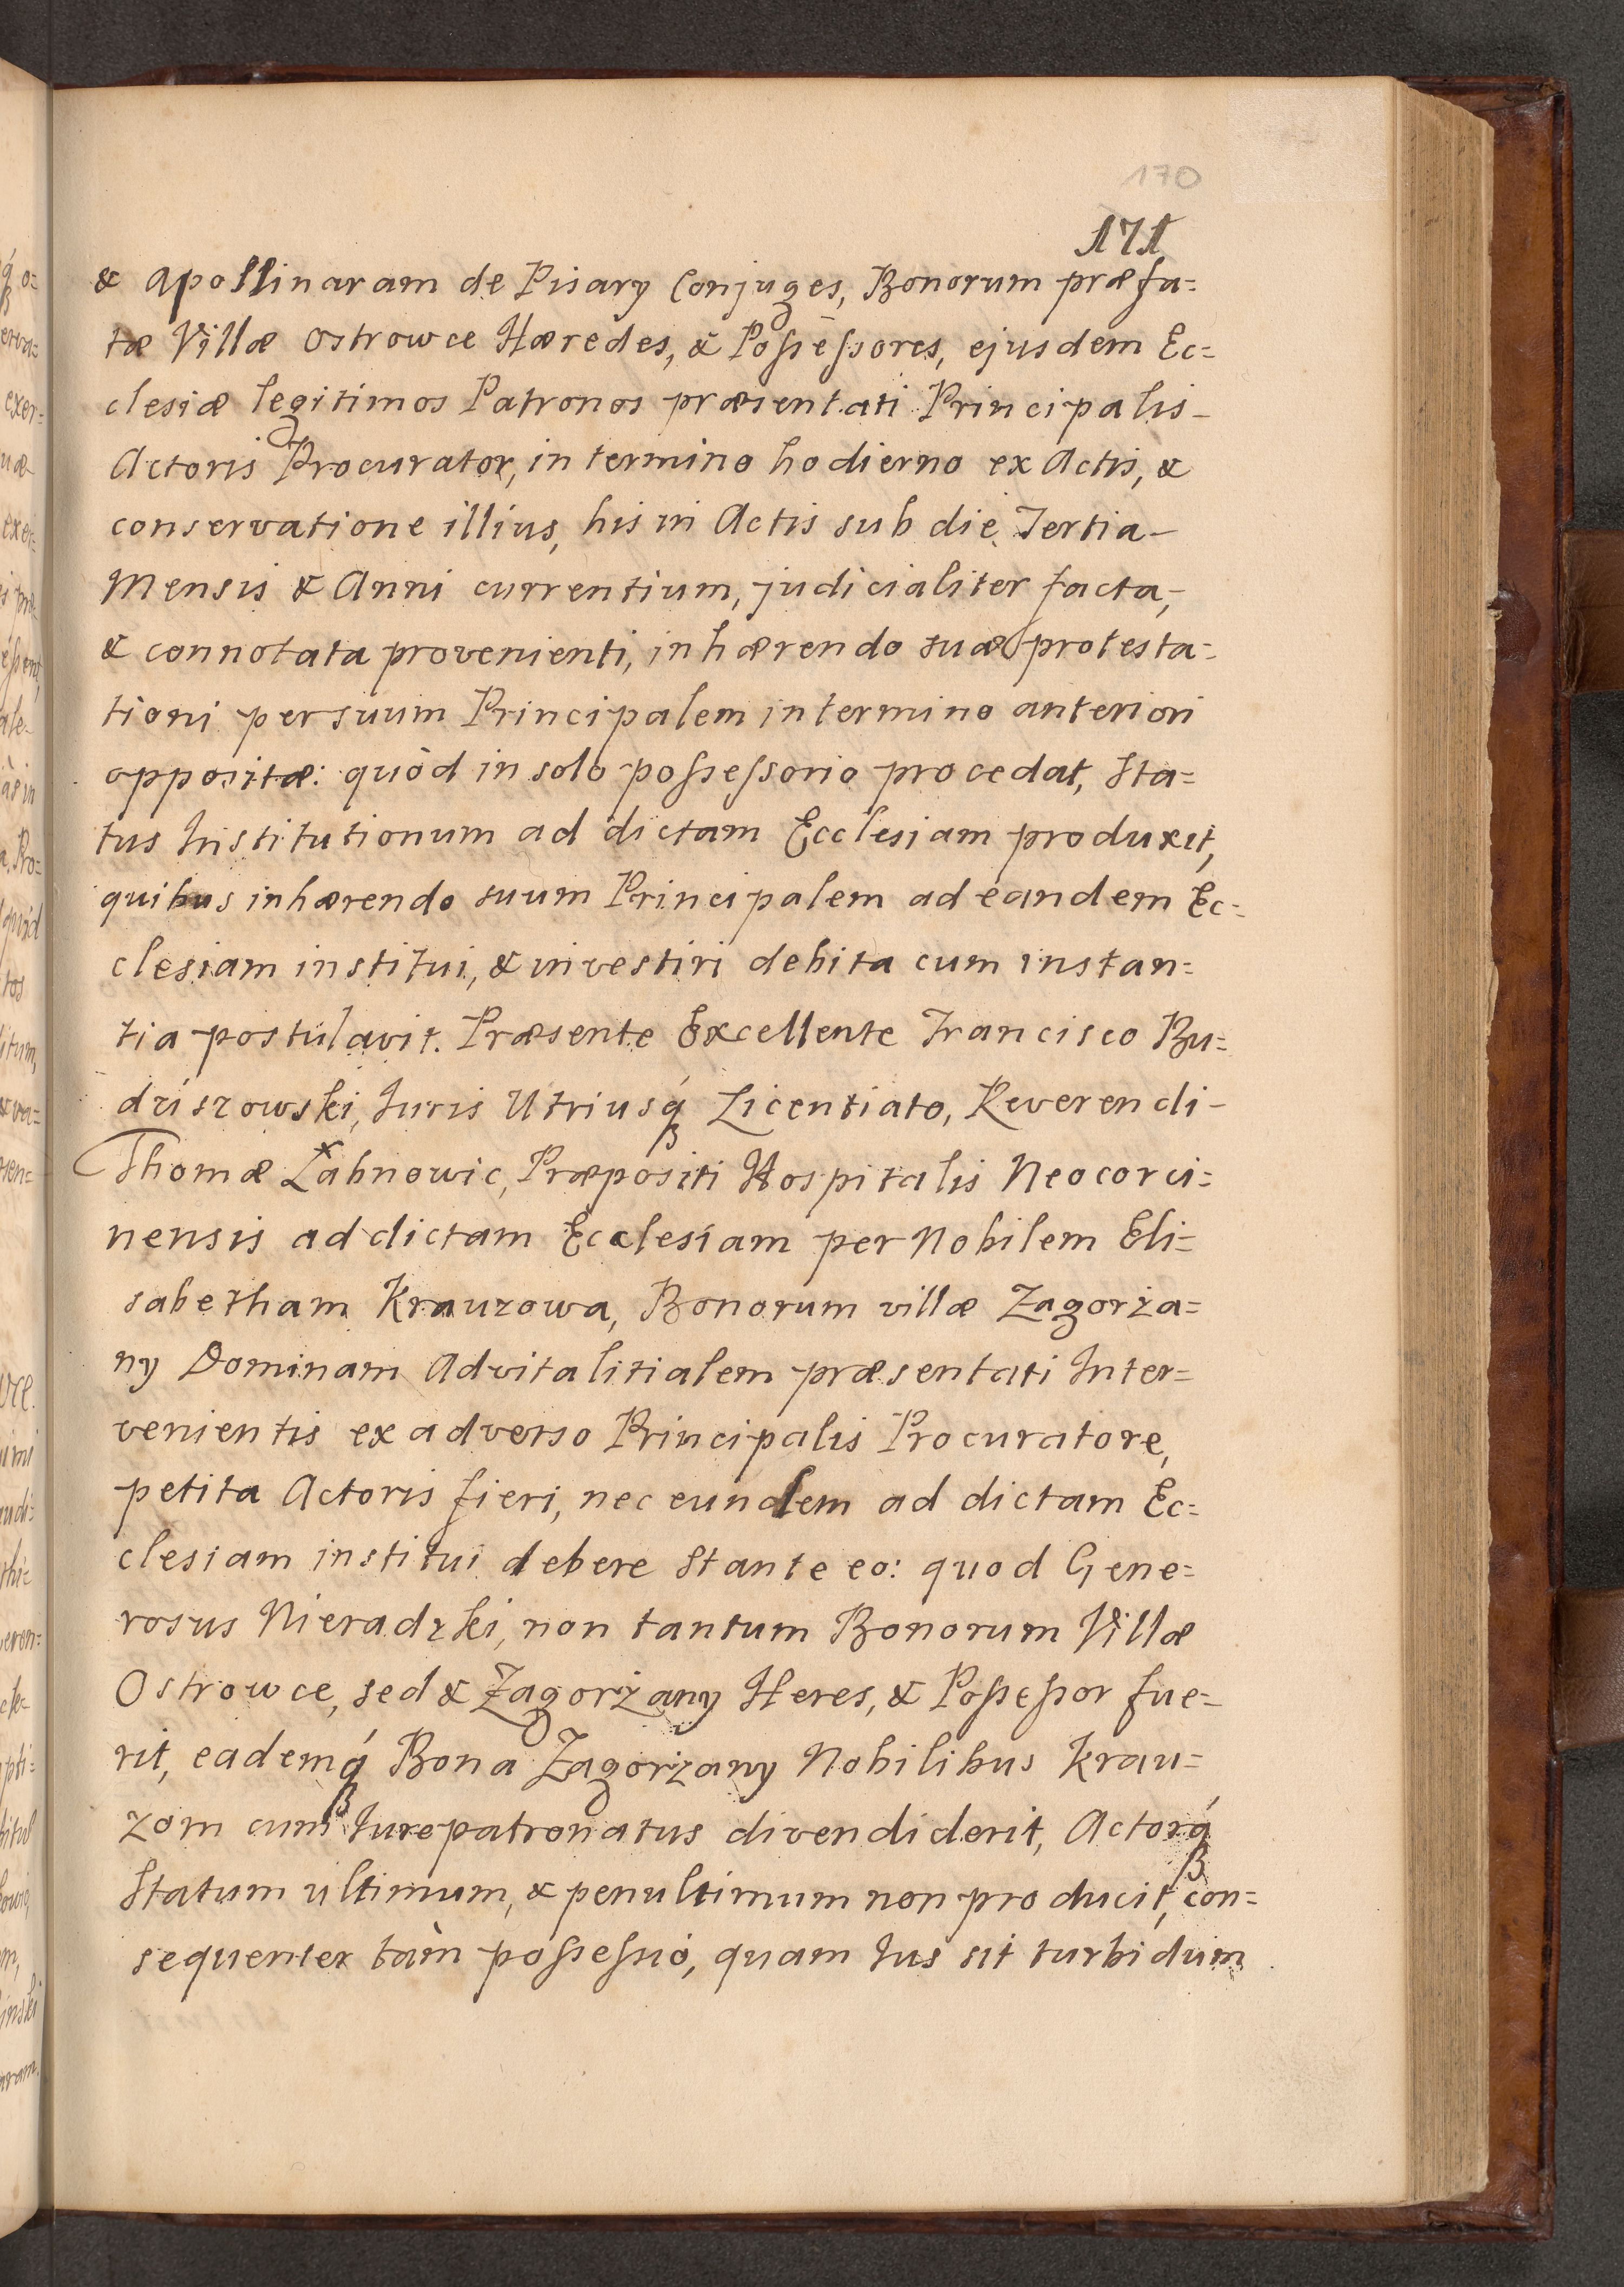 170
171
& Apollinaram de Pisary Conjuges, Bonorum præfa=
tæ Villæ Ostrowce Hæredes, & Possessores, ejusdem Ec=
clesiæ legitimos Patronos præsentati Principalis-
Actoris Procurator, in termino hodierno ex Actis, &
conservatione illius, his in Actis sub die Tertia-
Mensis & Anni currentium, judicialiter facta,-
& connotata provenienti, inhærendo suæ protesta=
tioni per suum Principalem in termino anteriori
oppositæ: quòd in solo possessorio procedat, Sta=
tus Institutionum ad dictam Ecclesiam produxit,
quibus inhærendo suum Principalem ad eandem Ec=
clesiam institui, & investiri debita cum instan=
tia postulavit. Præsente Excellente Francisco Bu=
dziszowski, Iuris Utriusq́ Licentiato, Reverendi-
Thomæ Żabnowic, Præpositi Hospitalis Neocorci=
nensis ad dictam Ecclesiam per Nobilem Eli=
sabetham Krauzowa, Bonorum villæ Zagorża=
ny Dominam Advitalitialem præsentati Inter=
venientis ex adverso Principalis Procuratore,
petita Actoris fieri, nec eundem ad dictam Ec=
clesiam institui debere stante eo: quod Gene=
rosus Nieradzki, non tantum Bonorum Villæ
Ostrowce, sed & Zagorżany Heres, & Possessor fue=
rit, eademq́ Bona Zagorżany Nobilibus Krau=
zom cum Iurepatronatus divendiderit, Actorq́
Statum ultimum, & penultimum non producit, con=
sequenter tàm possessio, quam Ius sit turbidum